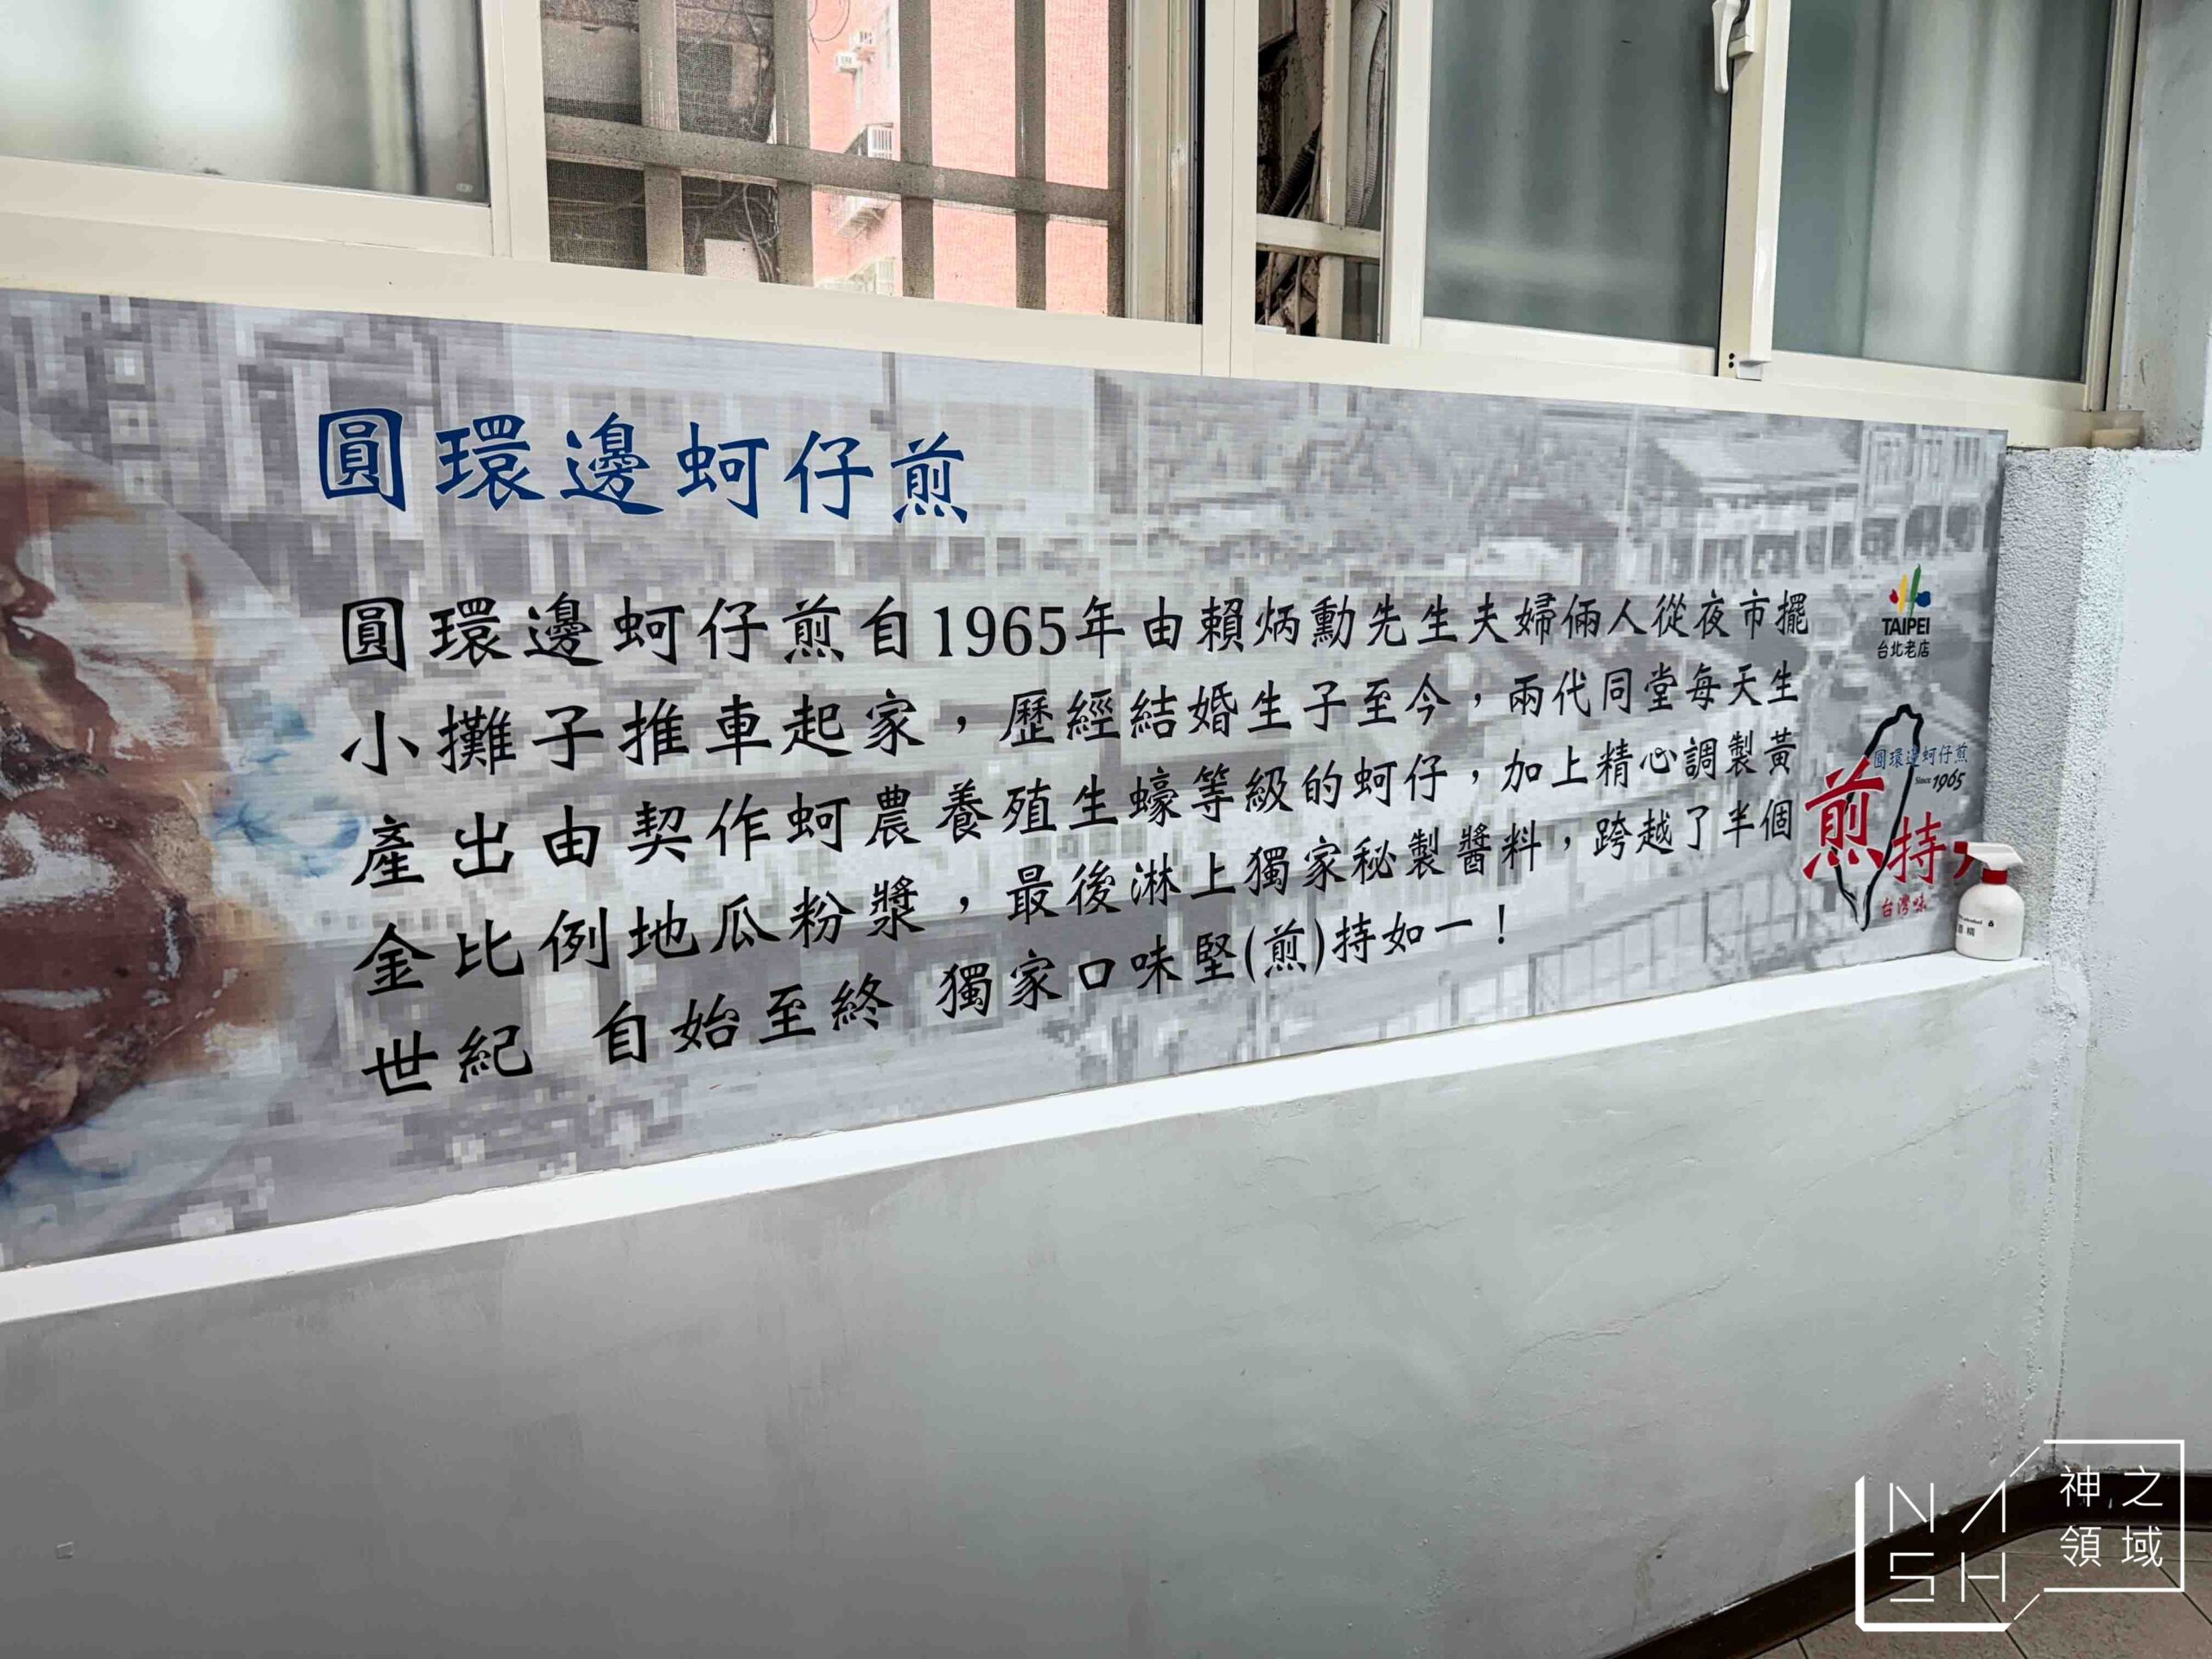 圓環邊蚵仔煎
圓環邊蚵仔煎自1965年由賴炳勳先生夫婦倆人從夜市擺
小攤子推車起家，歷經結婚生子至今，兩代同堂每天生
產出由契作蚵農養殖生蠔等級的蚵仔，加上精心調製黃
金比例地瓜粉漿，最後淋上獨家秘製醬料，跨越了半個
世紀 自始至終 獨家口味堅(煎)持如一！
TAIPEI
台北老店
圓環邊蚵仔煎
Since 1965
煎持
台灣味
NASH
神之
領域